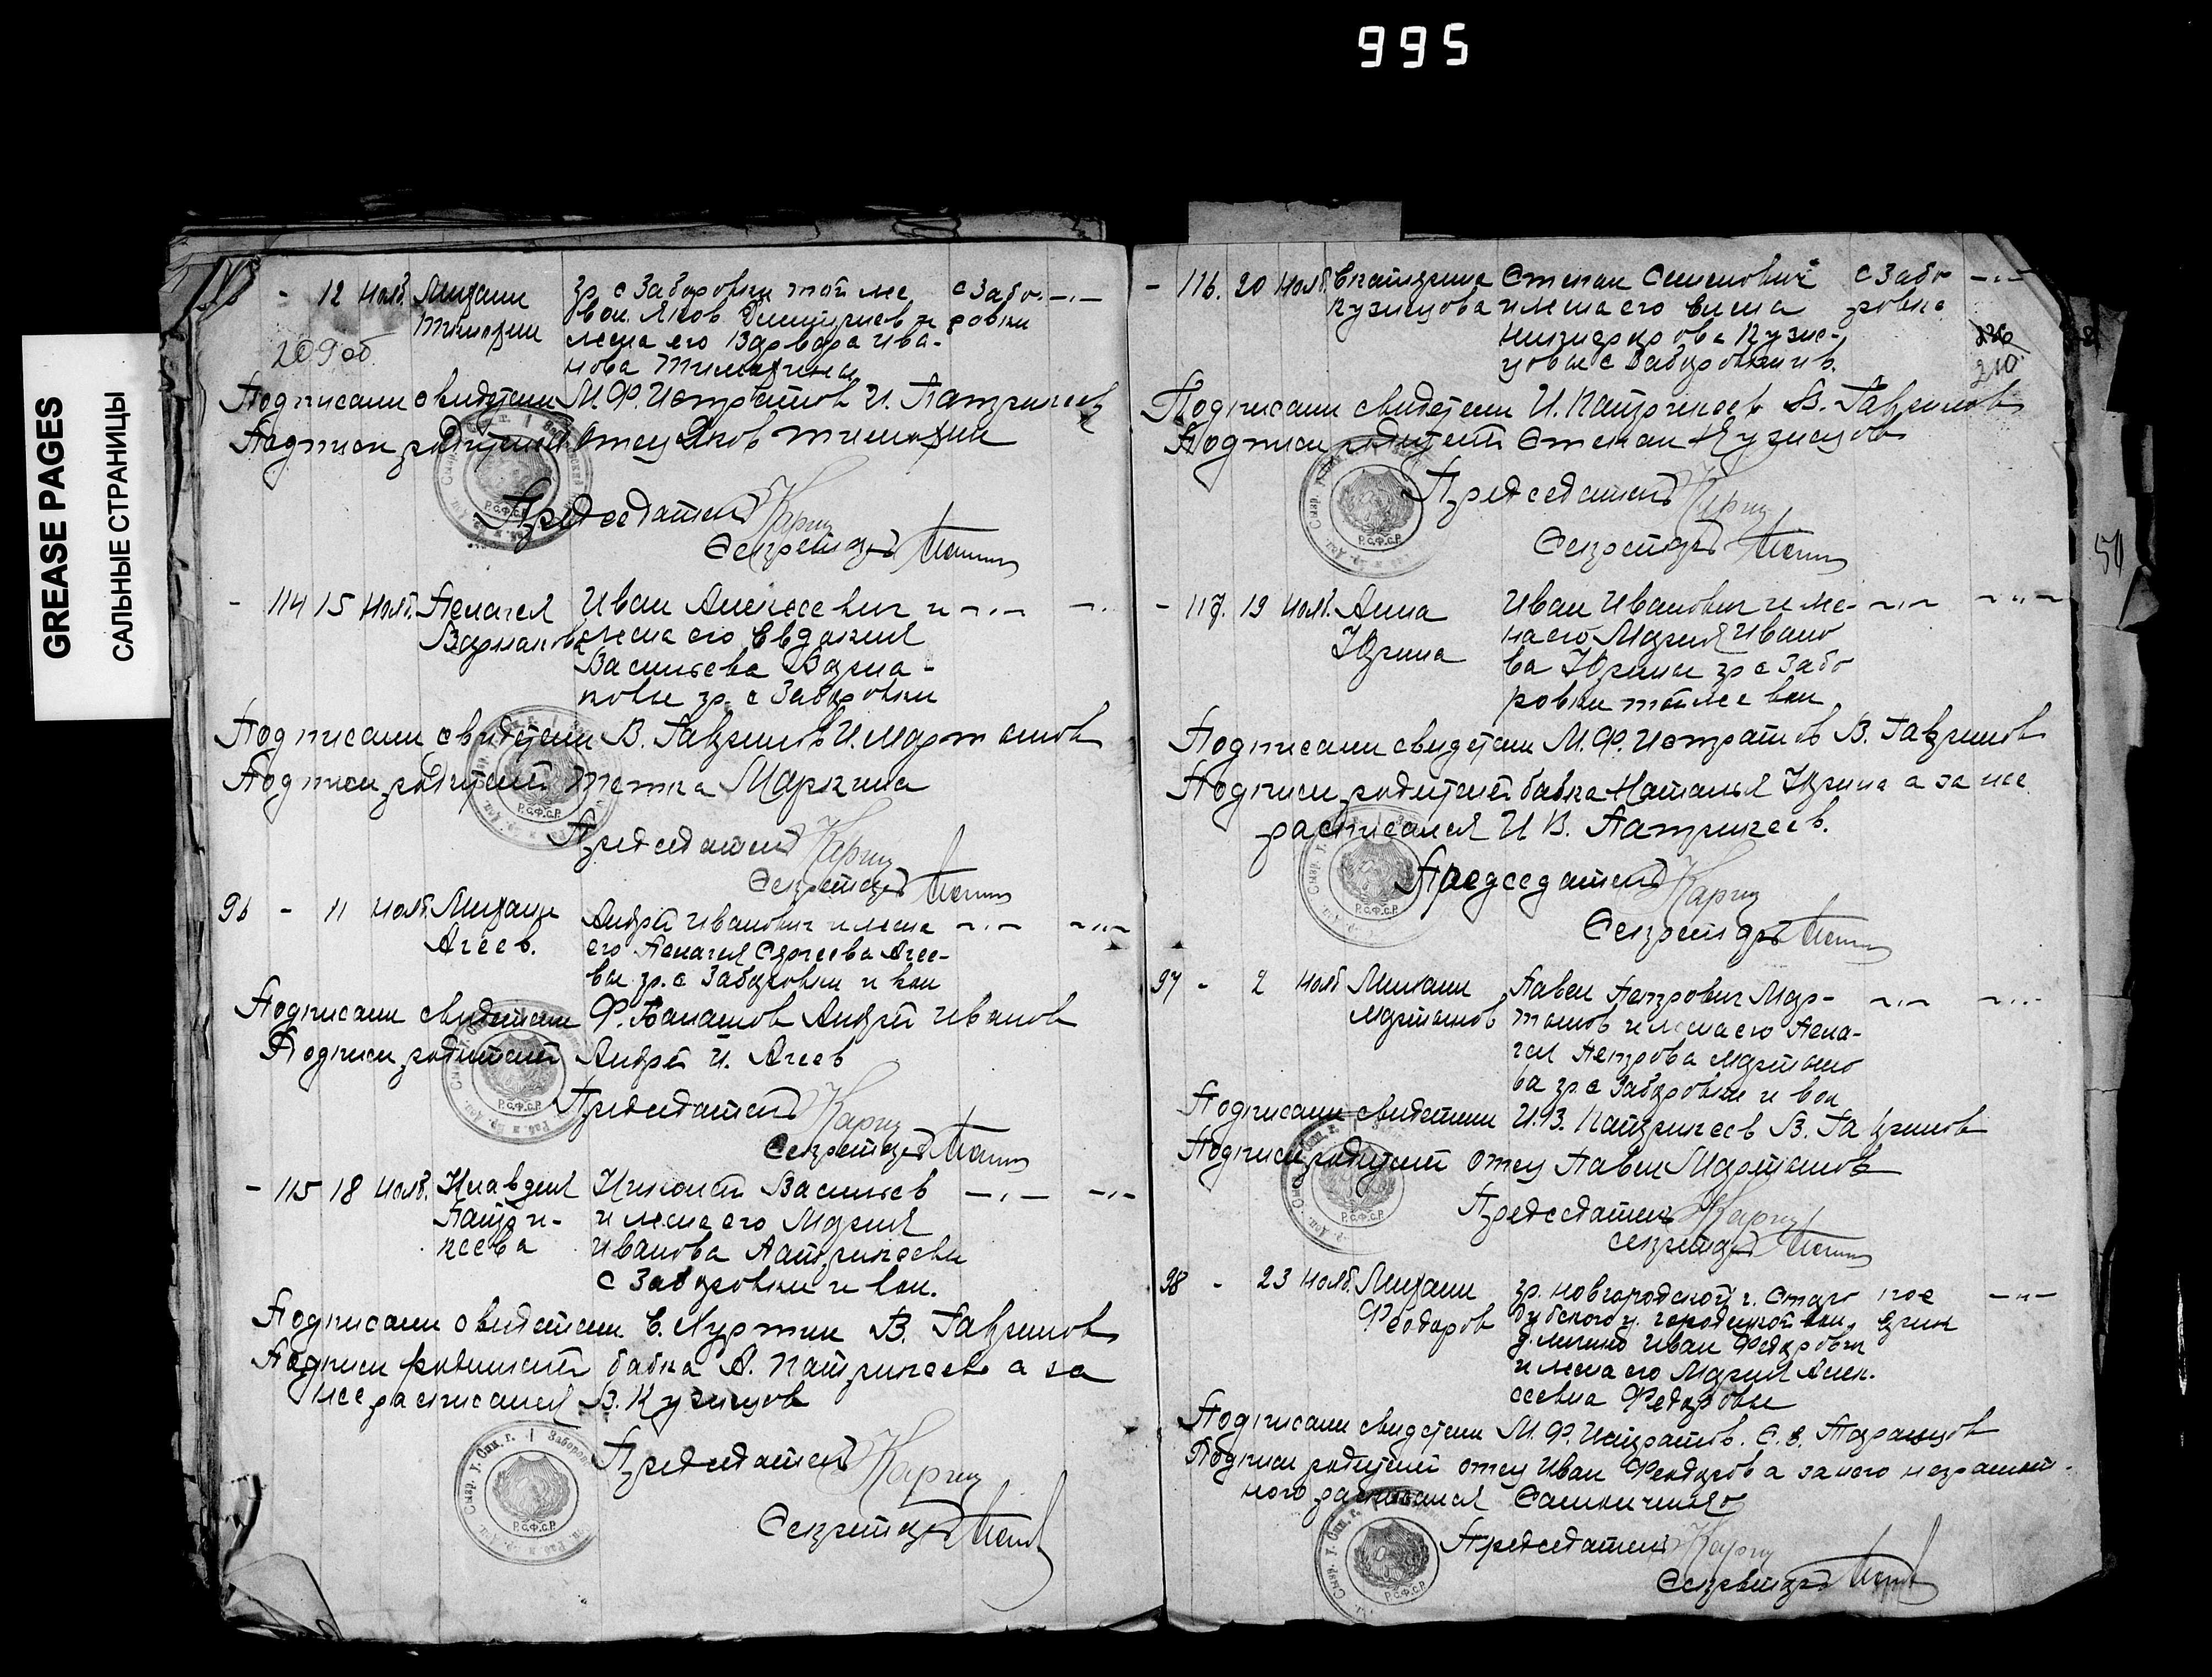 995
GREASE PAGES
САЛЬНЫЕ СТРАНИЦЫ
- 12 нояб. Михаил гр. с Заборовки той же с Забо- -"-
Тимофин вол. Яков Димитриев и ровки
209 об жена его Варвара Ива-
нова Тимофины
Подписали свидетели М.Ф. Истратов И. Патрикеев
Подписи родителей Отец Яков Тимофин
Председатель
Секретарь
- 114 15 нояб. Пелагея Иван Алексеевич и -"- -"-
Варламова жена его Евдокия
Васильева Варла-
мовы гр. с Заборовки
Подписали свидетели В. Гаврилов И. Мартанов
Подписи родителей тетка Маркина
Председатель
Секретарь
96 - 11 нояб. Михаил Андрей Иванович и жена -"- -"-
Агеев. его Пелагея Сергеева Агее-
вы гр. с Заборовки и вол
Подписали свидетели Ф. Балашов Андрей Иванов
Подписи родителей Андрей И. Агеев
Председатель
Секретарь
- 115 18 нояб. Клавдия Николай Васильев -"- -"-
Патри- и жена его Мария
кеева Иванова Патрикеевы
с Заборовки и вол.
Подписали свидетели В. Гаврилов
Подписи родителей бабка А. Патрикеева а за
нее расписался В. Кузнецов
Председатель
Секретарь
- 116. 20 нояб. Екатерина Степан Семенович с Забо -"-
Кузнецова и жена его Елена ровка
Никифорова Кузне-
цовы с Заборовки и в.
210
Подписали свидетели И. Патрикеев В. Гаврилов
Подписи родителей Степан Кузнецов
Председатель
Секретарь
- 117. 19 нояб. Анна Иван Иванович и же- -"- -"-
Юрина на его Мария Ивано
ва Юрины гр с Забо
ровки той же вол
Подписали свидетели М.Ф. Истратов В. Гаврилов
Подписи родителей бабка Наталья Юрина а за нее
расписался И В. Патрикеев.
Председатель
Секретарь
97 - 2 нояб Михаил Павел Петрович Мар- -"- -"-
Мартанов танов и жена его Пела-
гея Петрова Мартано
ва гр. с Заборовки и вол
Подписали свидетели И.В. Патрикеев В. Гаврилов
Подписи родителей отец Павел Мартанов
Председатель
Секретарь
98 - 23 нояб. Михаил гр. Новгородской г. Старо -"-
Феодоров дубского у. Городецкой вол.
Иван Федорович
и жена его Мария Алек-
сеевна Федоровы
Подписали свидетели М.Ф. Истратов.
Подписи родителей отец Иван Феодоров а за него неграмот-
ного расписался
Председатель
Секретарь
50